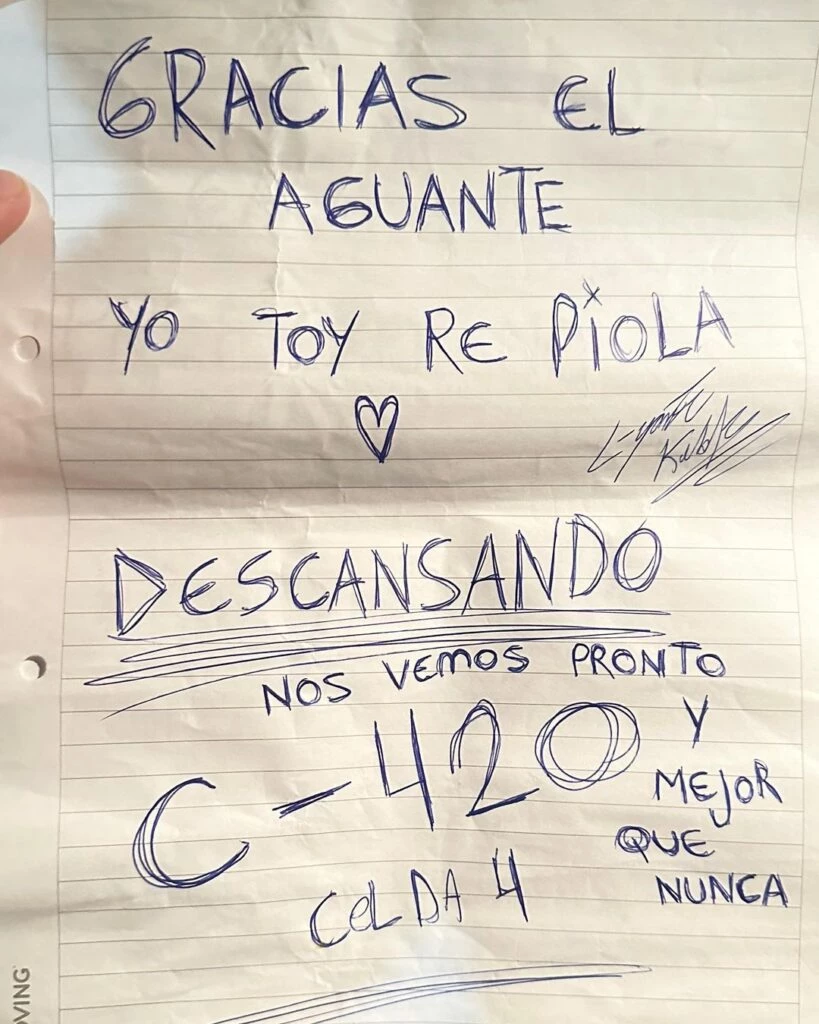 GRACIAS EL
AGUANTE
YO TOY RE PIOLA
DESCANSANDO
NOS VEMOS PRONTO
Y
MEJOR
QUE
NUNCA
C-420
CELDA 4
OVING